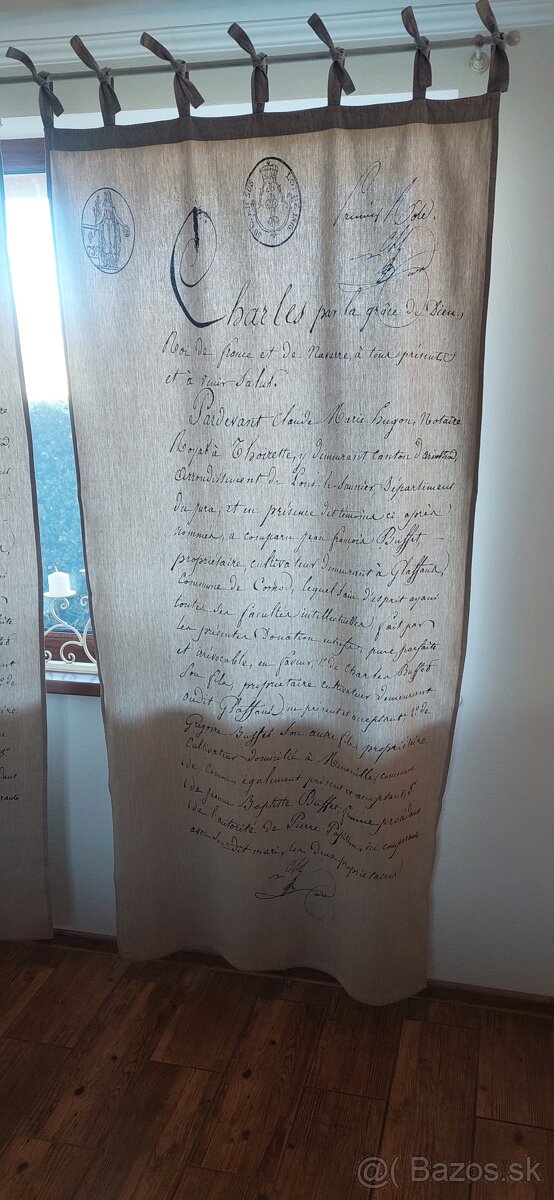 Premier Role.
Charles par la grâce de Dieu,
Roi de france et de Navarre, à tous présents
et à venir Salut.
Pardevant Claude Marie hugon, Notaire
Royal à Thoirette, y demeurant canton d'arinthod,
Arrondissement de Lons-le-Saunier, Département
du jura, et en présence des témoins ci après
nommés, a comparu jean françois Buffet,
propriétaire, cultivateur demeurant à Glaffaud,
Commune de Cornod, lequel Sain d'esprit ayant
toutes Ses facultés intellectuelles fait par
les présentes Donation entrevifs, pure parfaite
et irrévocable, en faveur, 1° de Charles Buffet
Son fils, propriétaire cultivateur demeurant
audit Glaffaud, ici présent et acceptant; 2° de
Grégoire Buffet Son autre fils propriétaire
Cultivateur domicilié à commune
de Cornod, également présent et acceptant; 3°
de jeanne Baptiste Buffet, femme procédant
de l'autorité de Pierre Papillon, ici comparants
Dit mari, les Deux propriétaires
@( Bazos.sk